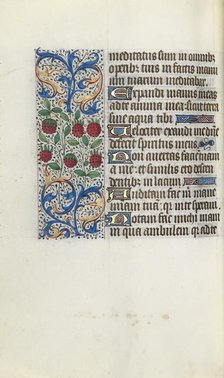 meditatus sum in omnibꝰ
operibꝰ tuis in factis manu
um tuarum meditabar.
Expandi manus meas
ad te anima mea sicut terra
sine aqua tibi
Velociter exaudi me domine
defecit spiritus meus
Non avertas faciem tuam
a me: et similis ero descen
dentibꝰ in lacum
Auditam fac michi mane
miam tuā: qꝛ in te speravi.
Notam fac michi viam
in qua ambulem qꝛ ad te